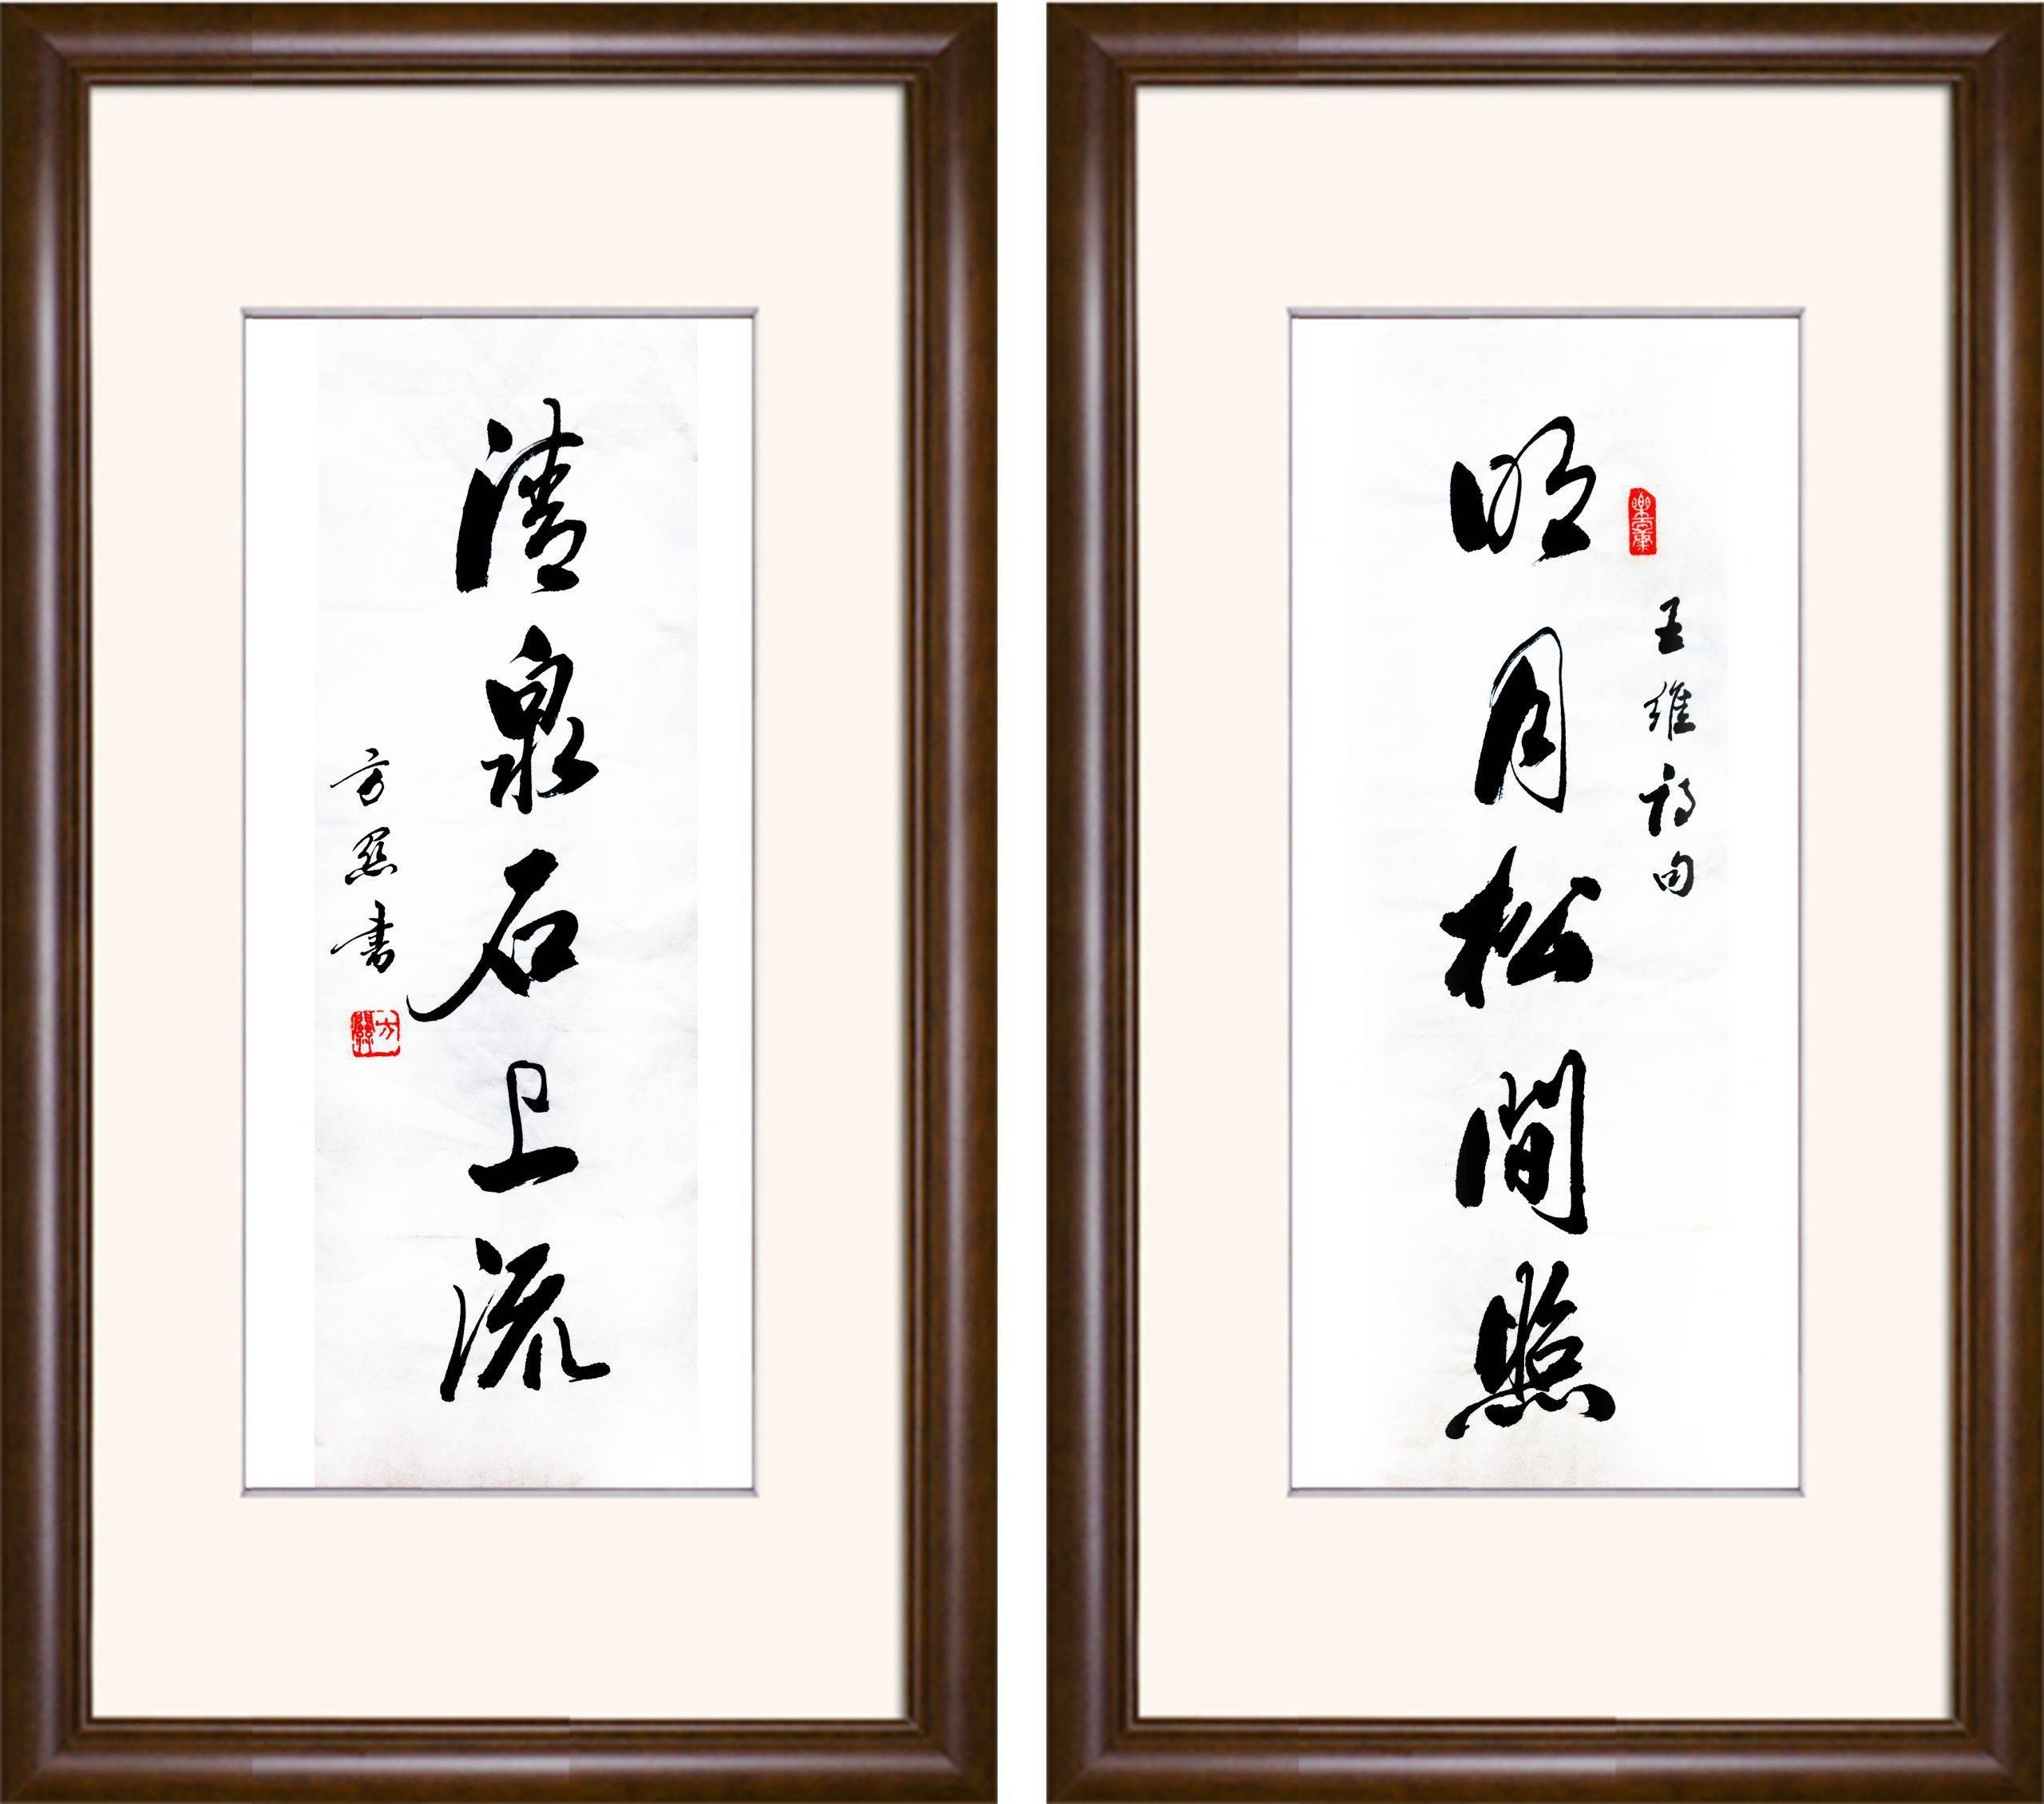 王維詩句
明月松間照
清泉石上流
方 書